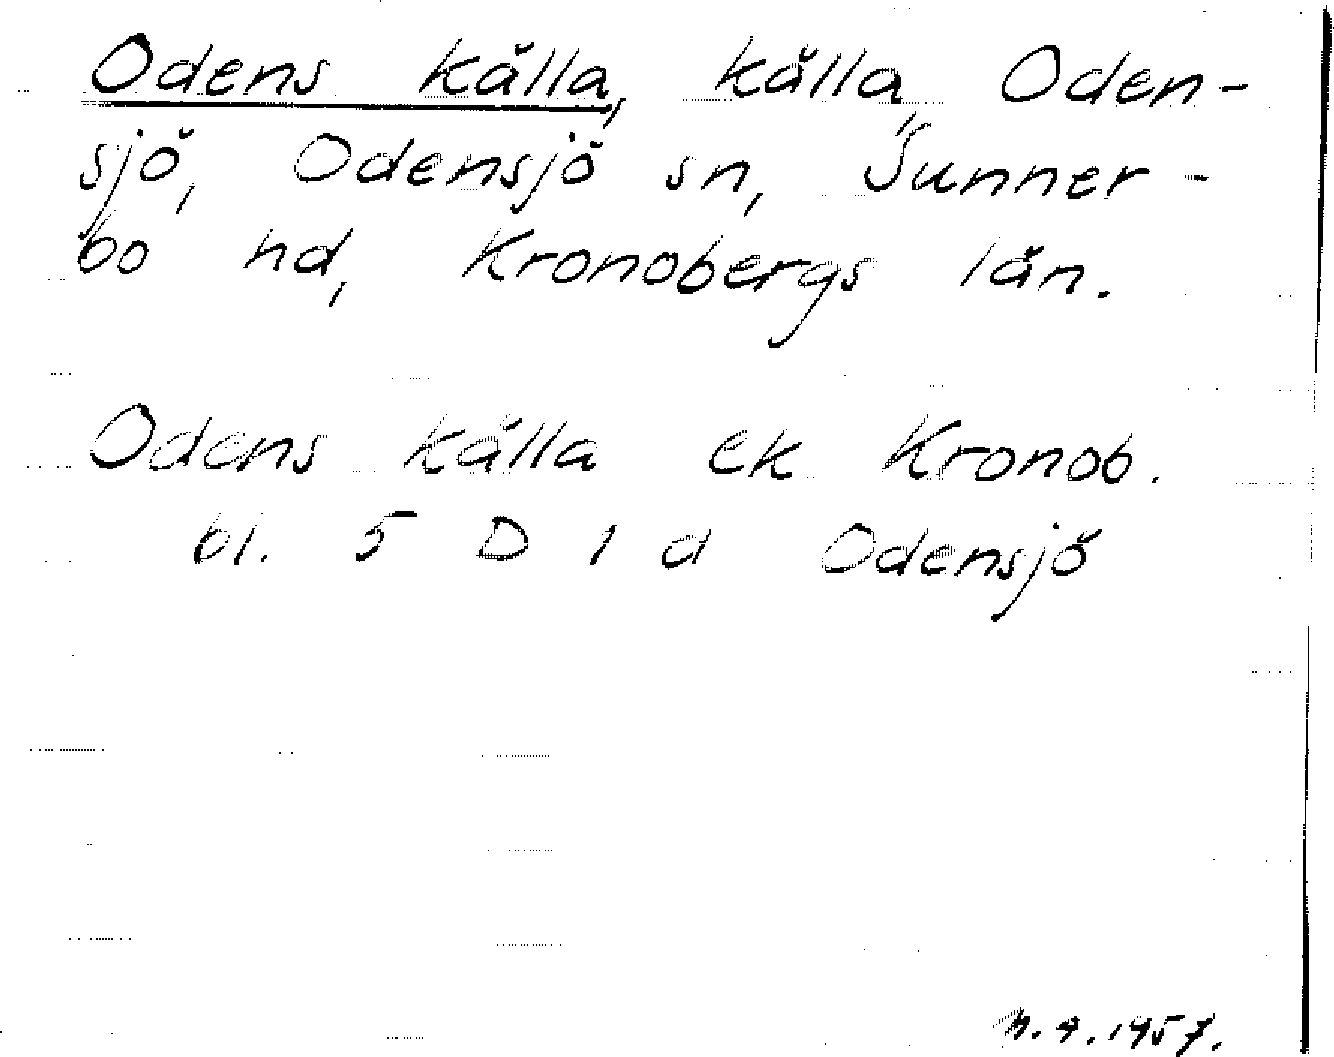 Odens källa, källa, Oden-
sjö, Odensjö sn, Sunner-
bo hd, Kronobergs län.
Odens källa ek Kronob.
bl. 5 D 1 d Odensjö